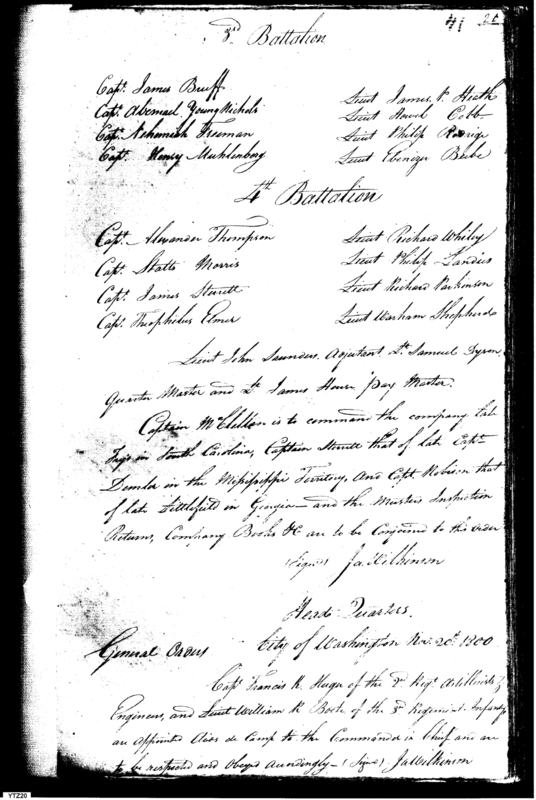 41 26
3rd Battalion
Capt. James Bruff
Lieut James P. Heath
Capt. Abemael Young Nichols
Lieut Howel Cobb
Capt. Nehemiah Freeman
Lieut Philip
Capt. Henry Muhlenberg
Lieut Ebenezer Beebe
4th Battalion
Capt. Alexander Thompson
Lieut Richard Whiley
Capt. Statts Morris
Lieut Philip Landais
Capt. James Sterrett
Lieut Richard Parkinson
Capt. Theophilus Elmer
Lieut Warham Shepherd
Lieut John Saunders, Adjutant Lt. Samuel Dyson
Quarter Master and Lt. James House pay Master.
Captain McClellan is to command the company late
in South Carolina, Captain Sterrett that of late Capt.
Demler in the Mississippi Territory, and Capt. Robison that
of late Littlefield in Georgia - and the Musters Inspection
Returns, Company Books &c are to be Conformed to this order
(Signed) Ja Wilkinson
Head Quarters.
General Orders
City of Washington Nov. 20th 1800
Capt Francis K. Huger of the 2d Regt. Artillerists &
Engineers, and Lieut William K. of the 3d Regiment Infantry
are appointed Aids de Camp to the Commander in Chief and are
to be respected and Obeyed accordingly - (Signed) Ja Wilkinson
YTZ20